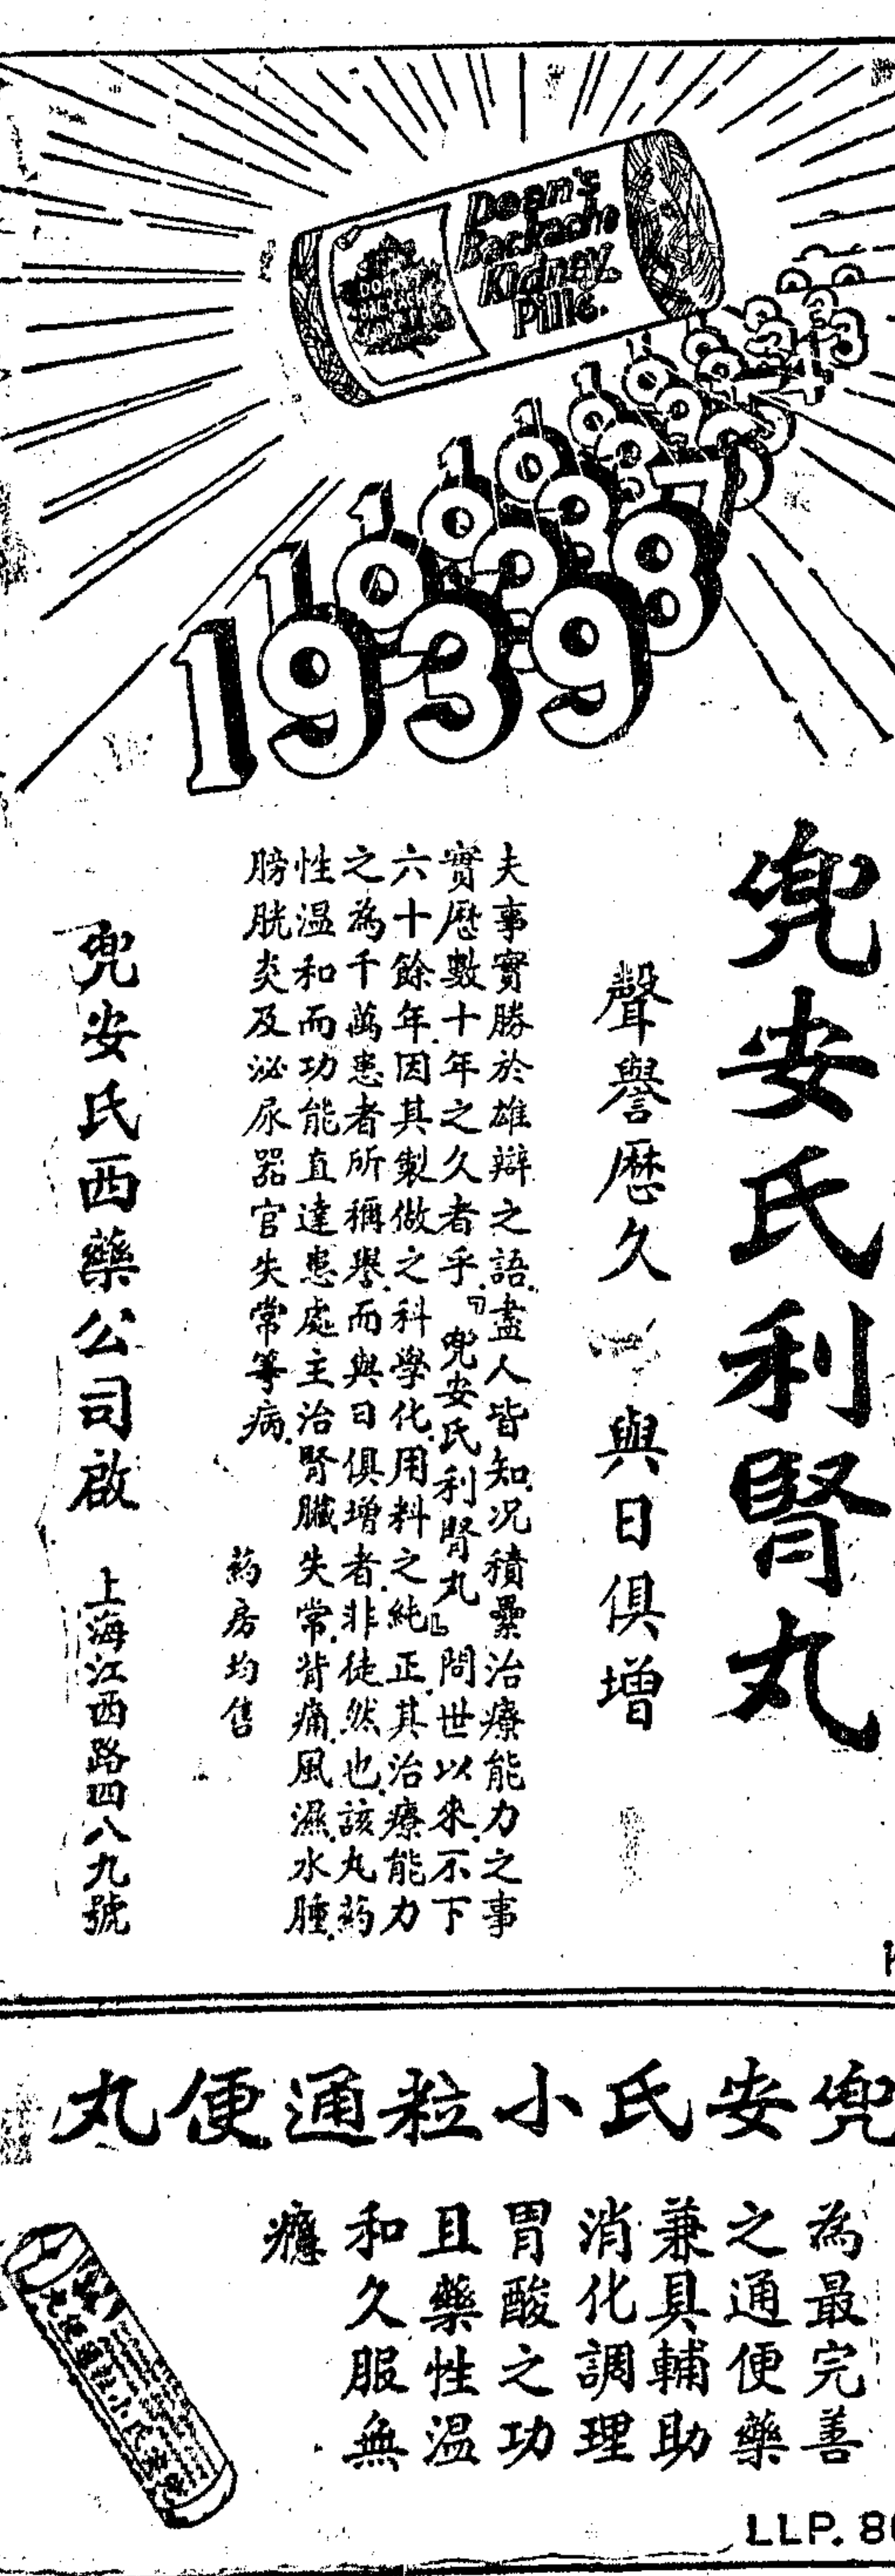 Doan's
Backache
Kidney
Pills.
1939
兜安氏利腎丸
聲譽歷久
與日俱增
夫事實勝於雄辯之語.盡人皆知.况積纍治療能力之事
實歷數十年之久者乎.「兜安氏利腎丸」問世以來.不下
六十餘年.因其製做之科學化.用料之純正.其治療能力
之為千萬患者所稱譽.而與日俱增者.非徒然也.該丸葯
性温和而功能直達患處.主治腎臟失常.背痛.風濕.水腫.
膀胱炎及泌尿器官失常等病.
葯房均售
兜安氏西藥公司啟
上海江西路四八九號
兜安氏小粒通便丸
為最完善
之通便藥
兼具輔助
消化調理
胃酸之功
且藥性温
和久服無
癮
LLP. 8